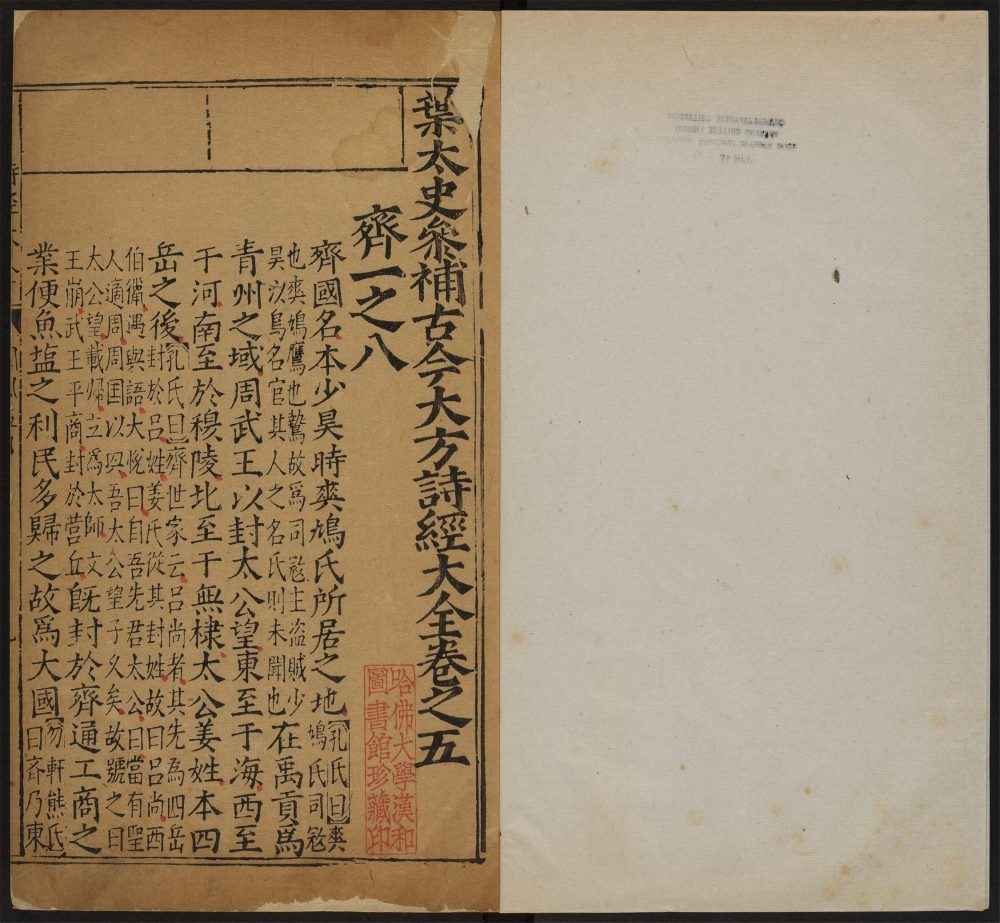 葉太史叅補古今大方詩經大全卷之五
齊一之八
齊國名本少昊時爽鳩氏所居之地孔氏曰爽鳩氏司宼
也爽鳩鷹也鷙故爲司宼主盗賊少昊以鳥名官其人之名氏則未聞也在禹貢爲
青州之域周武王以封太公望東至于海西至
于河南至於穆陵北至于無棣太公姜姓本四
岳之後孔氏曰齊世家云吕尚者其先為四岳封於吕姓姜氏從其封姓故曰吕尚西
伯獵遇與語大悅曰自吾先君太公曰當有聖人適周周因以興吾太公望子久矣故號之曰
太公望載歸立爲太師文王崩武王平商封於营丘旣封於齊通工商之
業便魚盐之利民多歸之故爲大國勿軒熊氏曰斉乃東
哈佛大學漢和
圖書館珍藏印